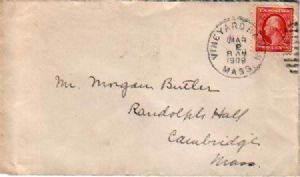 VINEYARD HAVEN
MAR
2
8 AM
1909
MASS.
Mr. Morgan Butler
Randolph Hall
Cambridge
Mass.